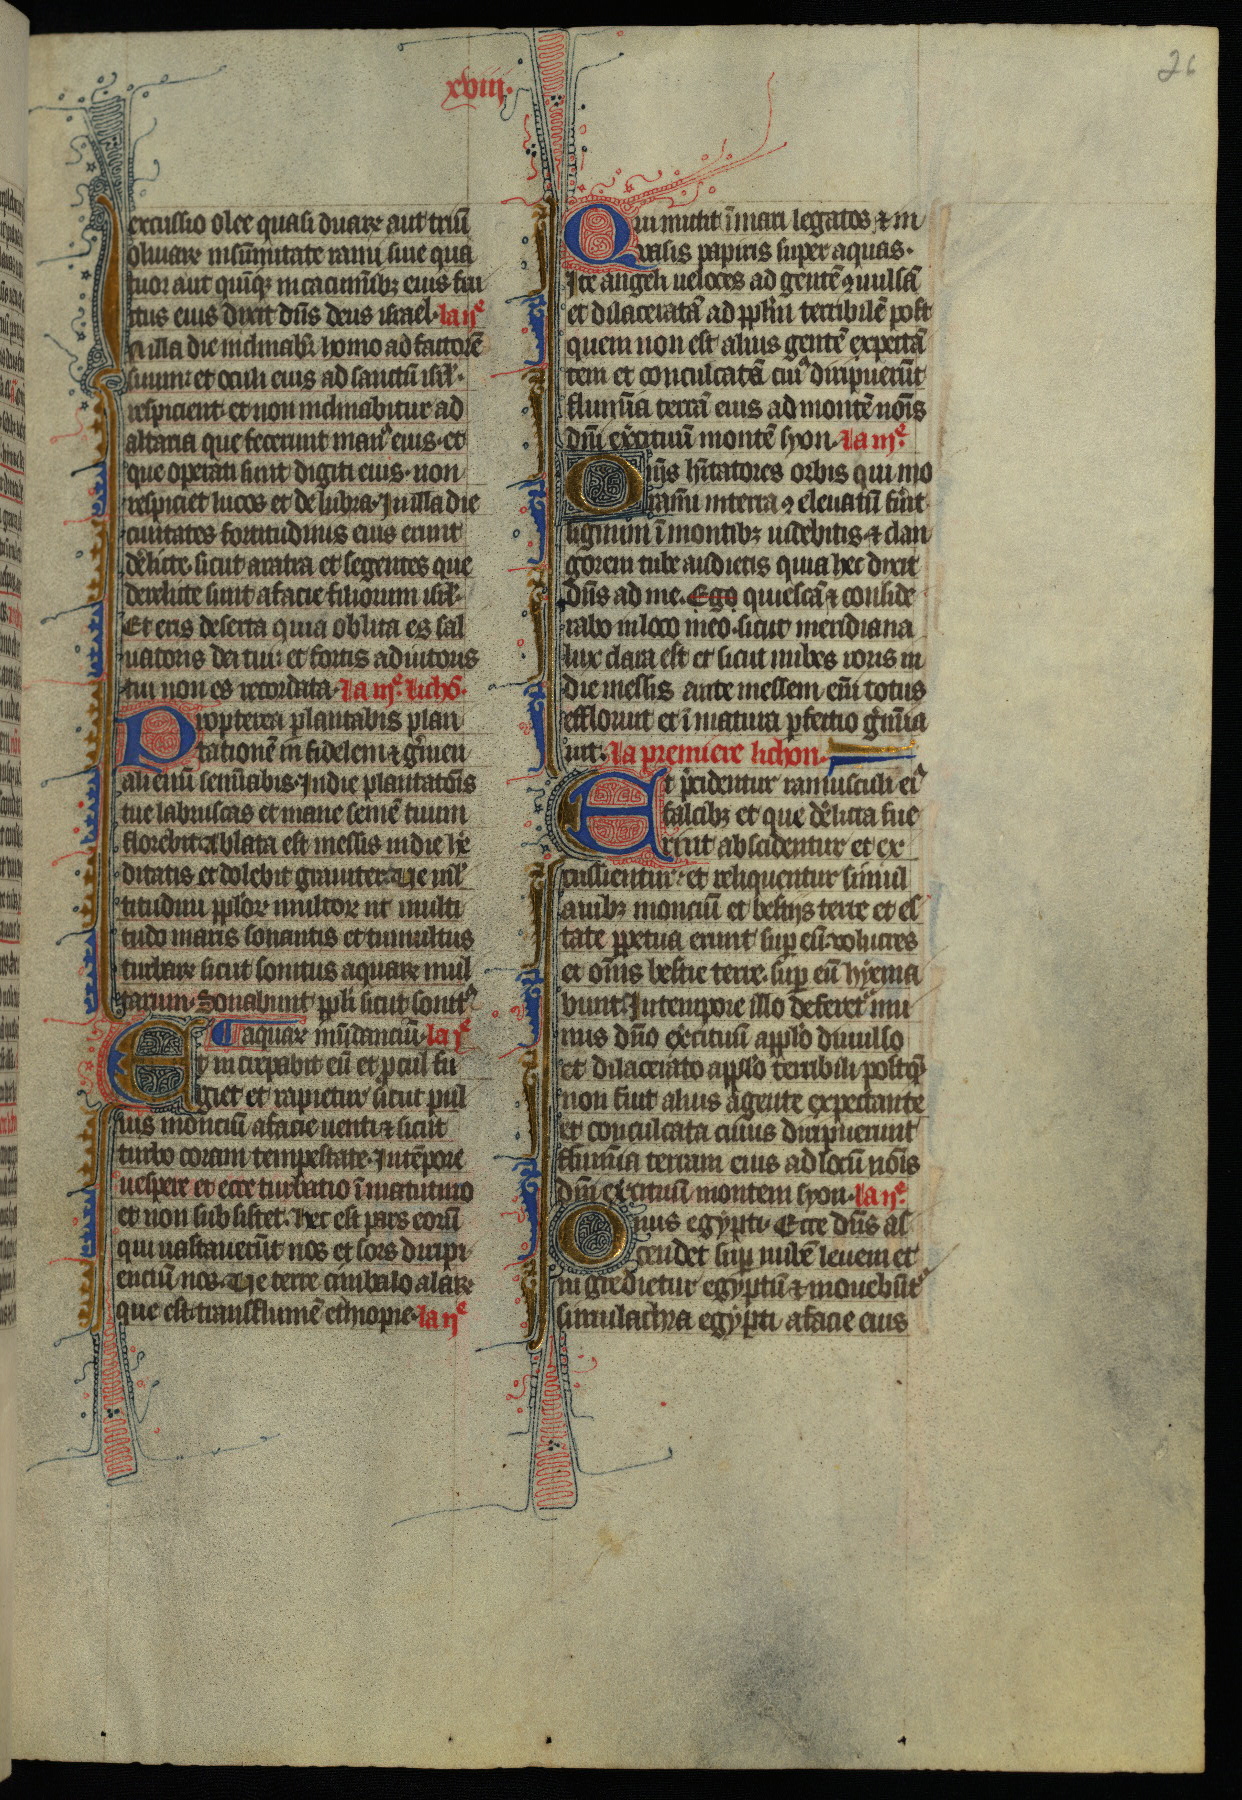 26
xviii.
excussio olee quasi duaꝝ aut triū
oliuaꝝ in sūmitate rami siue qua
tuor aut quīqꝫ in cacuminibꝫ eius fru
ctus eius dixit dn̄s deus israel. la iiᵉ
In illa die inclinabit̄ homo ad factorē
suum: et oculi eius ad sanctū isrl̄.
respicient. et non inclinabitur ad
altaria que fecerunt manꝰ eius. et
que operati sunt digiti eius. non
respiciet lucos et delubra. In illa die
ciuitates fortitudinis eius erunt
derelicte sicut aratra et segentes que
derelicte sunt a facie filiorum isrl̄.
Et eris deserta quia oblita es sal
uatoris dei tui: et fortis adiutoris
tui non es recordata. la iiiᵉ. lichō.
Propterea plantabis plan
tationē in fidelem ⁊ gͥmen
alienū seminabis. In die plantatōis
tue labruscas et mane semē tuum
florebit. Ablata est messis in die he
ditatis et dolebit grauiter. Ue mͣl
titudini pploꝝ multoꝝ ut multi
tudo maris sonantis et tumultus
turbaꝝ sicut sonitus aquaꝝ mul
tarum. Sonabunt ppl̄i sicut sonitꝰ
aquaꝝ inūdanciū. la iᵉ
Et increpabit eū et ꝓcul fu
giet et rapietur sicut pul
uis monciū a facie uenti ⁊ sicut
turbo coram tempestate. In tēpore
uespere et ecce turbatio ī matutino
et non subsistet. Hec est pars eorū
qui uastauerūt nos et sors diripi
enciū nos. Ue terre cimbalo alaꝝ
que est trans flumē ethiopie. la iiᵉ
Qui mittit ī mari legatos ⁊ in
uasis papiris super aquas.
Ite angeli ueloces ad gentē ɔuulsā
et dilaceratā ad ppl̄m terribilē post
quem non est alius gentē expectā
tem et conculcatā cuiꝰ diripuerūt
flumīa terrā eius ad montē nōis
dn̄i ex̄cituū montē syon. la iiiᵉ.
Om̄s hītatores orbis qui mo
ramī in terra ɔ eleuatū fūit
signum ī montibꝫ uidebitis. ⁊ clan
gorem tube audietis quia hec dixit
dn̄s ad me. Ego quiescā ⁊ conside
rabo in loco meo. sicut meridiana
lux clara est et sicut nubes roris in
die messis ante messem em̄ totus
effloruit et īmatura ꝑfectio gͥmīa
uit. la premiere lichon.
Et p̄cidentur ramusculi eiꝰ
falcibꝫ et que dͤlicta fue
rīnt abscidentur et ex
cussientur: et relinquentur simul
auibꝫ monciū et bestijs terre et es
tate ꝑpetua erunt suꝑ eū uolucres
et om̄s bestie terre. suꝑ eū hyema
bunt. In tempore illo deferetꝰ mu
nus dn̄o ex̄cituū a ppl̄o diuulso
et dilacerato a ppl̄o terribili. postqͣ
non fuit alius a gente expectante
et conculcata cuius diripuerunt
flumīa terram eius ad locū nōis
dn̄i ex̄cituū montem syon. la iiᵉ.
Onus egypti. Ecce dn̄s as
cendet suꝑ nubē leuem et
in gredietur egyptū ⁊ mouebūtꝰ
simulachra egypti a facie eius